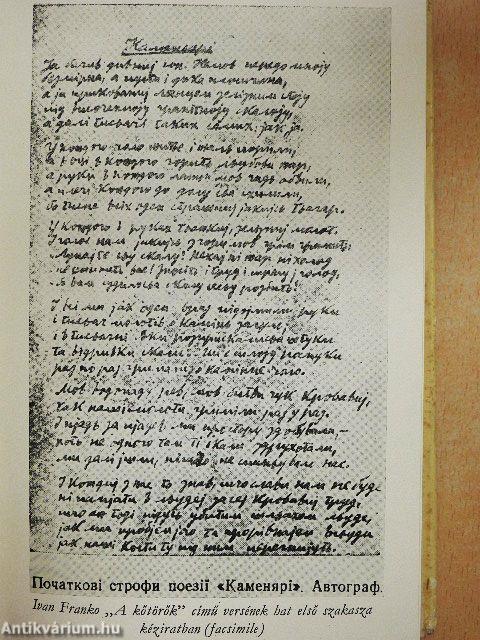 Каменярі
Я бачив дивний сон. Немов передо мною
безмірна, а пуста і дика площина,
а я прикований ланцем зелізним стою
під височенною гранітною скалою,
а далі тисячі таких самих, як я.
У кождого чоло життє і жаль порили,
а в очі в кождого горить любови жар,
а руки в кождого ланци мов гадь обвили,
а плечі кождого до долу ся схилили,
бо тисне всіх один страшний якийсь тягар.
У кождого в руках тяжкий, зелізний молот.
І голос нам якийсь з гори мов грім гримить:
Лупайте сю скалу! Нехай ні жар ні холод
не спинить вас! Зносіть і труд і спрагу і голод,
бо вам судилось скалу сесю розбить!
І всі ми як один враз підоймили руки
і тисяч молотів о камінь загуло,
і в тисячні боки розприскалися штуки
та відривки скали. Ми с силою розпуки
раз по раз гримали о камінне чоло.
Мов водопаду рев, мов битви гук кровавий,
так наші молоти гриміли раз у раз.
І пядь за пядею ми простору здобували,
хоть не одного там ті скали
ми далі йшли, ніщо не спинювало нас.
І кождий з нас те знав, що слави нам не буде
ні памяти в людей за сей кровавий труд,
що аж тоді підуть убитим шляхом люде,
як ми пробєм єго та
як наші кости ту під ним
Початкові строфи поезії «Каменярі». Автограф.
Ivan Franko „A kőtörők” című versének hat első szakasza
kéziratban (facsimile)
Antikvárium.hu